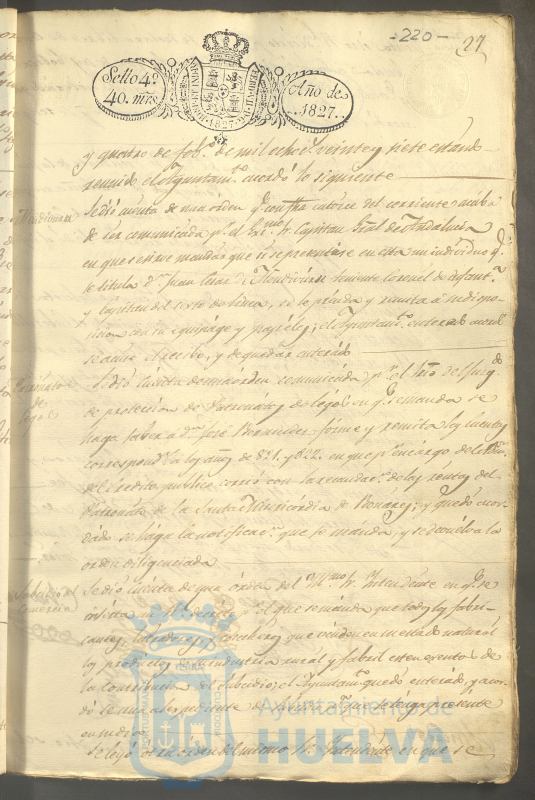 -220-
27
Sello 4º
40. mrs.
Año de
1827.
y quatro de feb.º de mil ochoct. veinte y siete estando
reunido el Ayuntam.to acordó lo siguiente
Se dió cuenta de una orden q. con fha catorce del corriente acaba
de ser comunicada p.r el Ex.mo Sr. Capitan Gral de Andalucia
en que se sirve mandar que si se presentase en esta un individuo q.
se titula d.n Juan de Mondivirua teniente Coronel de infant.a
y Capitan del sexto de linea, se le prenda y remita a su dispo-
sicion con su equipage y papeles; el Ayuntam.to enterado acordó
se acuse el recibo, y de quedar enterado
Patronato
de
Se dió cuenta de una orden comunicada p.r el de Juzg.do
de proteccion de Patronatos de en q. se manda se
haga saber a d.n José Bermudez forme y remita las cuentas
correspond.tes a los años de 821. y 822. en que p.r encargo del
del Credito publico corrió con la recaudac.n de las rentas del
Patronato de la Santa Misericordia de Bonares; y quedó acor-
dado se haga la notificac.n que se manda, y se devuelva la
orden diligenciada
Subsidio del
Comercio
Se dió cuenta de una orden del Sr. Intendente en q. se
el que se manda que todos los fabri-
cantes, y cosecheros que vendan en su estado natural
los productos de su industria rural y fabril esten exentos de
la Contribucion del Subsidio; el Ayuntam.to quedó enterado, y acor-
dó se una al expediente de la materia que se tenga presente
Se leyó otra orden del mismo Sr. Intendente en que se
Ayuntamiento de
HUELVA